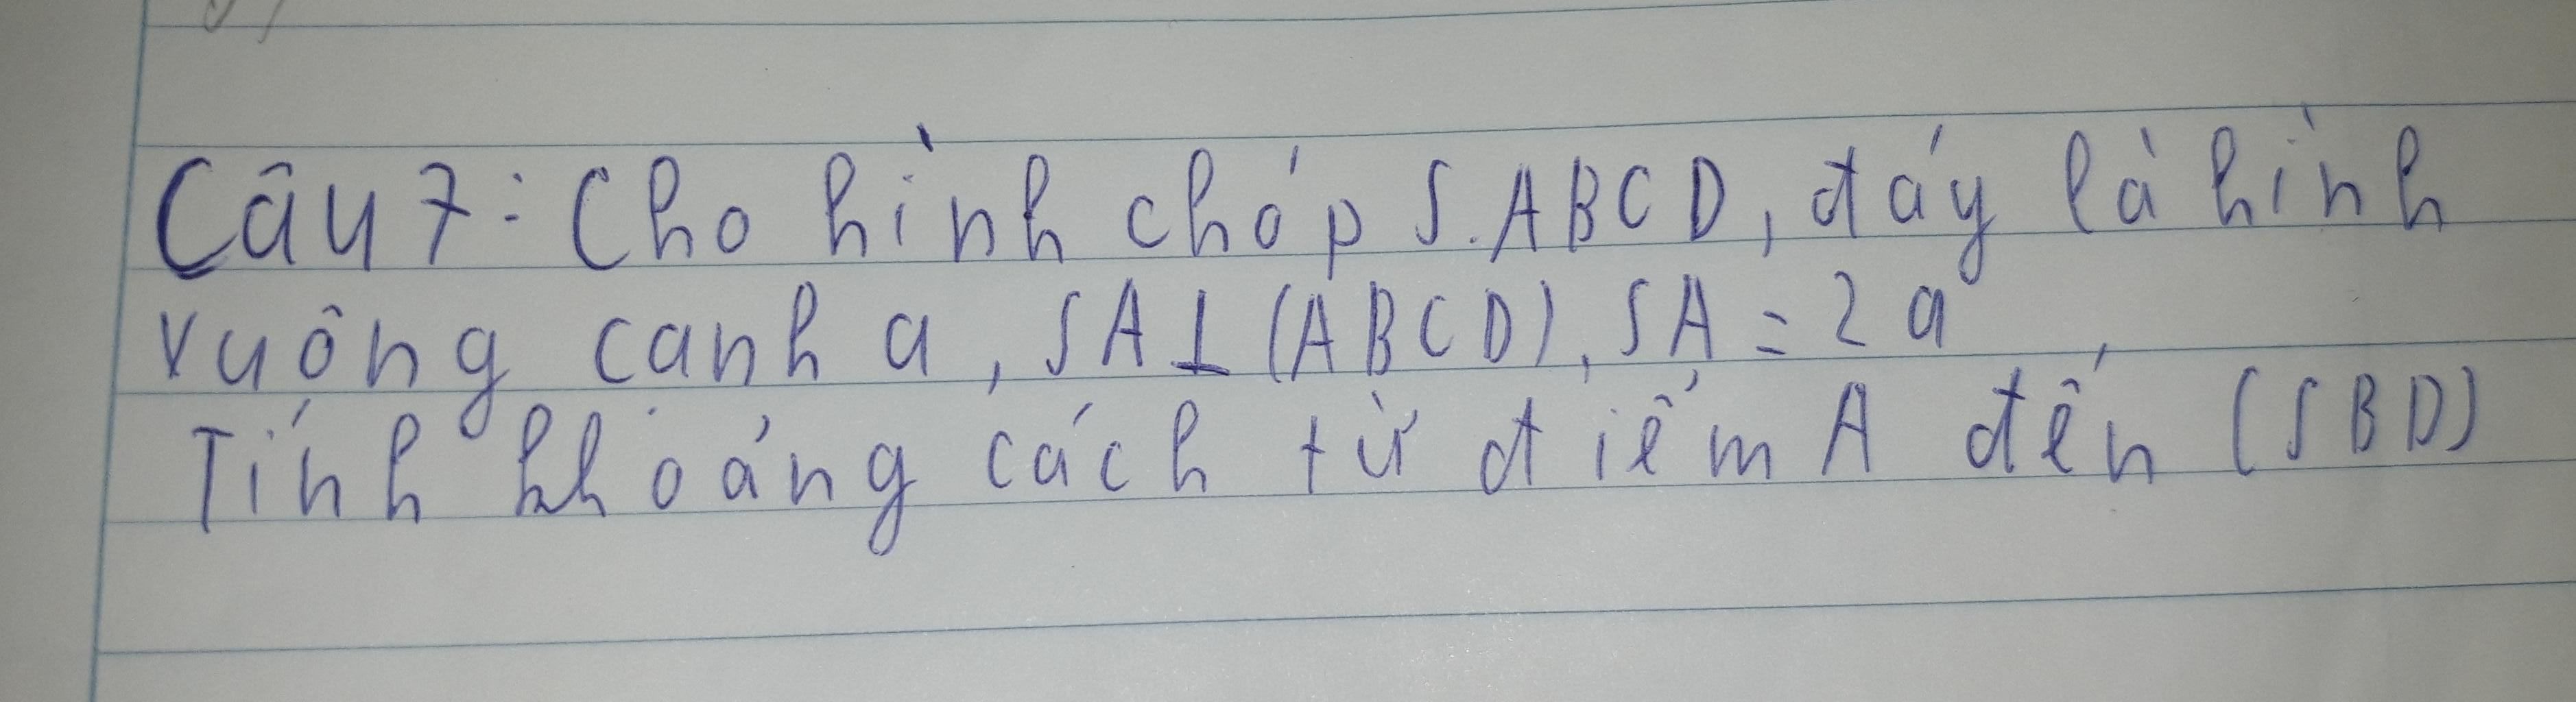 Câu 7: Cho hình chóp S.ABCD, đáy là hình
vuông cạnh a, SA⊥(ABCD), SA = 2a
Tính khoảng cách từ điểm A đến (SBD)